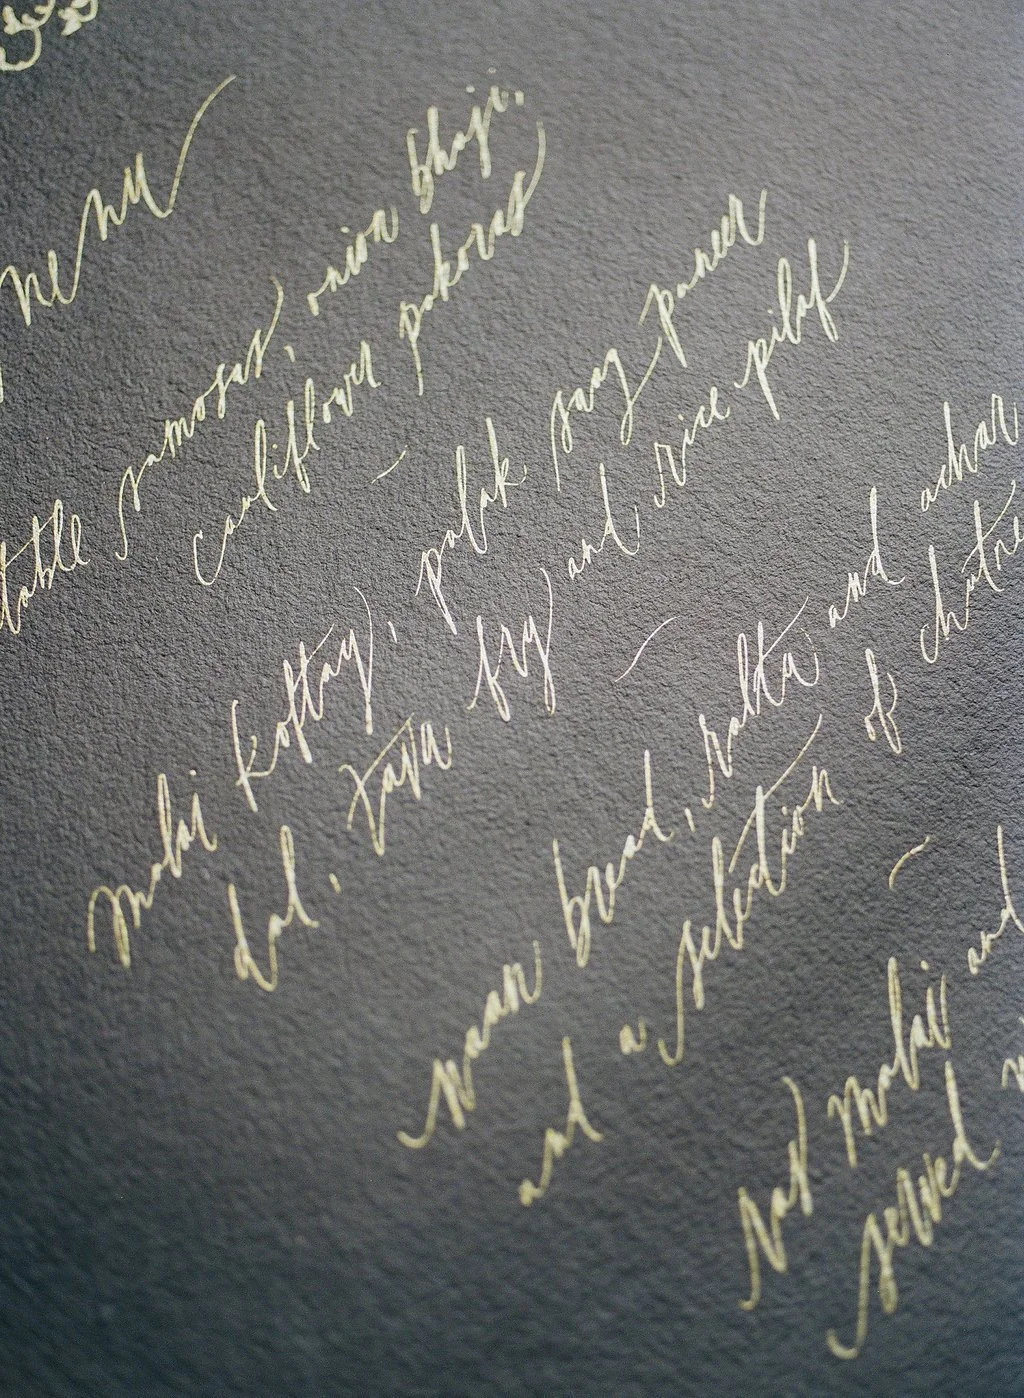 menu
table samosas, onion bhaji,
cauliflower pakoras
~
malai koftay, palak saag paneer
dal, tava fry and rice pilaf
~
naan bread, raita and achar
and a selection of chutne
~
ras malai and
served